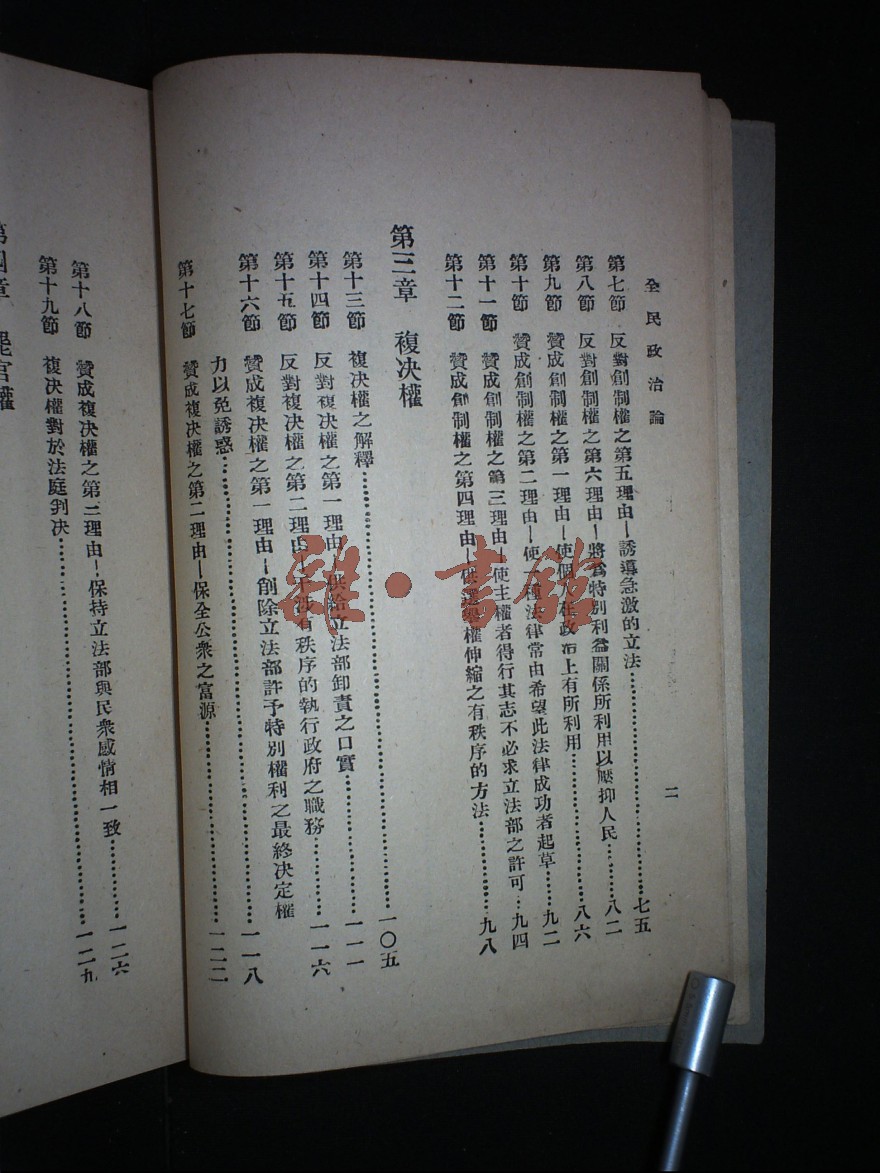 全民政治論
二
第七節 反對創制權之第五理由—誘導急激的立法……七五
第八節 反對創制權之第六理由—將爲特別利益關係所利用以壓抑人民……八二
第九節 贊成創制權之第一理由—使個人在政治上有所利用……八六
第十節 贊成創制權之第二理由—使一種法律常由希望此法律成功者起草……九二
第十一節 贊成創制權之第三理由—使主權者得行其志不必求立法部之許可…九四
第十二節 贊成創制權之第四理由—供選舉權伸縮之有秩序的方法……九八
第三章 複决權
第十三節 複决權之解釋……一〇五
第十四節 反對複决權之第一理由—供給立法部卸責之口實……一一一
第十五節 反對複决權之第二理由—干涉有秩序的執行政府之職務……一一六
第十六節 贊成複决權之第一理由—削除立法部許予特別權利之最終决定權
力以免誘惑……一一八
第十七節 贊成複决權之第二理由—保全公衆之富源……一二二
第十八節 贊成複决權之第三理由—保持立法部與民衆感情相一致……一二六
第十九節 複决權對於法庭判决……一二九
第四章 罷官權
雜·書館